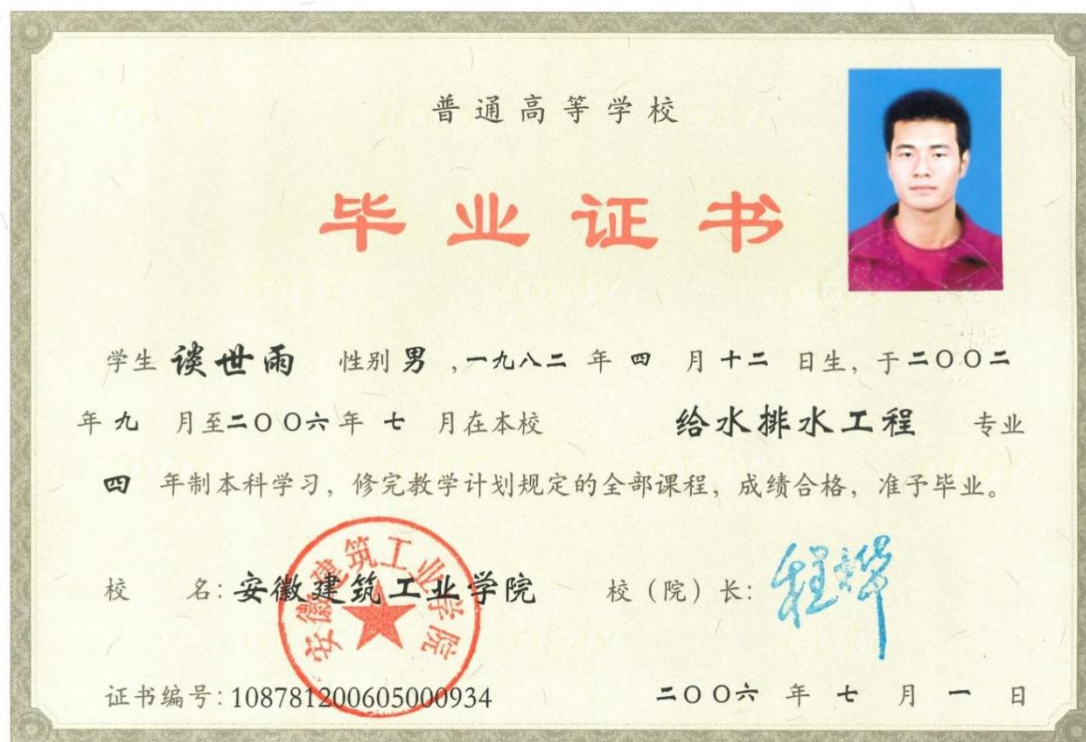 普通高等学校
毕业证书
学生 谈世雨 性别 男 ,一九八二 年 四 月 十二 日生, 于二〇〇二
年 九 月至二〇〇六 年 七 月在本校 给水排水工程 专业
四 年制本科学习, 修完教学计划规定的全部课程, 成绩合格, 准予毕业。
校 名: 安徽建筑工业学院 校（院）长:
安徽建筑工业学院
证书编号: 108781200605000934 二〇〇六 年 七 月 一 日